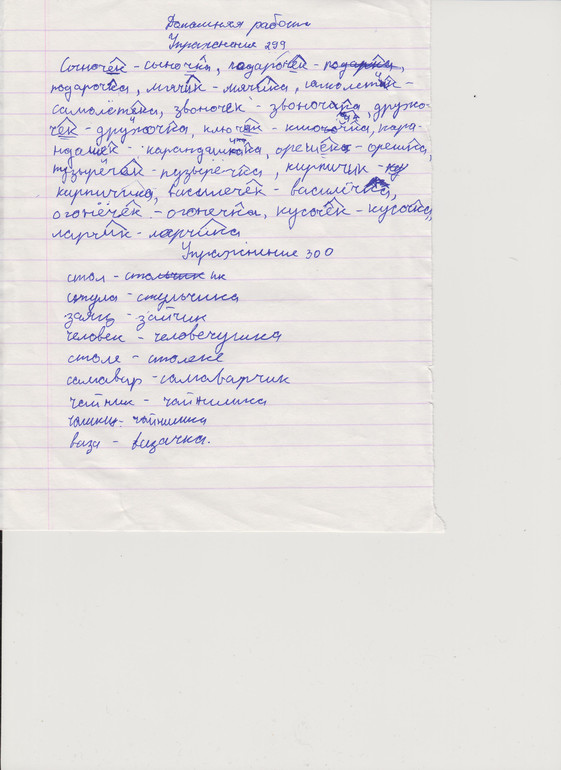 Домашняя работа
Упражнение 299
Сыночек - сыночка, подарочек - подарка,
подарочка, мячик - мячика, самолётик -
самолётика, звоночек - звоночка, дружо-
чек - дружочка, ключик - ключика, кара-
ндашек - карандашика, орешек - орешка,
пузырёчек - пузырёчка, кирпичик - ку
кирпичика, василёчек - василёчка,
огонёчек - огонечка, кусочек - кусочка,
ларчик - ларчика
Упражнение 300
стол - стольчик ик
стула - стульчика
заяц - зайчик
человек - человечушка
столе - столеке
самавар - самаварчик
чайник - чайничика
чайничика
ваза - вазачка.